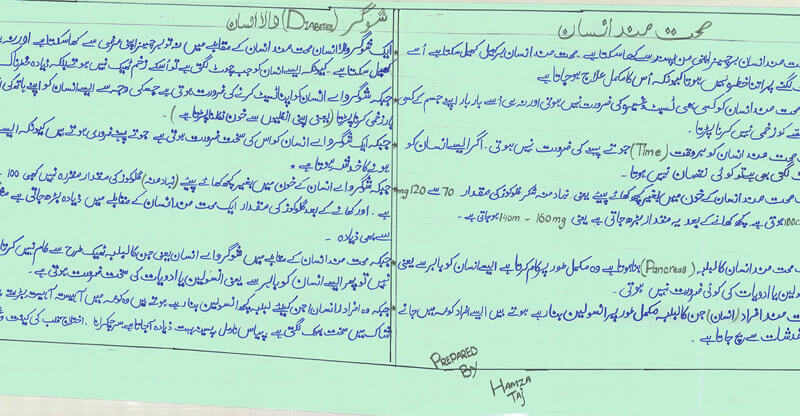 صحت مند انسان
صحت مند انسان ہر چیز اپنی من پسند سے کھا سکتا ہے۔ صحت مند انسان ہر کھیل کھیل سکتا ہے اُسے
لگنے پر اتنا خطرہ نہیں ہوتا کیونکہ اُس کا مکمل علاج ہو جاتا ہے
صحت مند انسان کو کسی بھی ٹیسٹ وغیرہ کی ضرورت نہیں ہوتی اور نہ ہی اُسے بار بار اپنے جسم کے کسی
کو زخمی نہیں کرنا پڑتا۔
صحت مند انسان کو ہر وقت (Time) جوتے پہننے کی ضرورت نہیں ہوتی۔ اگر ایسے انسان کو
لگتی بھی ہے تو کوئی نقصان نہیں ہوتا۔
صحت مند انسان کے خون میں بغیر کچھ کھائے پیئے یعنی نہار منہ شکر گلوکوز کی مقدار 70 سے 120 mg
100cc ہوتی ہے۔ کچھ کھانے کے بعد یہ مقدار بڑھ جاتی ہے یعنی 140m - 160mg ہو جاتی ہے۔
صحت مند انسان کا لبلبہ (Pancreas) ہوتا ہے وہ مکمل طور پر کام کرتا ہے ایسے انسان کو باہر سے یعنی
انسولین یا ادویات کی کوئی ضرورت نہیں ہوتی۔
صحت مند افراد (انسان) جن کا لبلبہ مکمل طور پر انسولین بنا رہے ہوتے ہیں ایسے افراد کومہ میں جانے
خدشات سے بچ جاتا ہے۔
شوگر (DIABETES) والا انسان
ایک شوگر والا انسان صحت مند انسان کے مقابلے میں نہ تو ہر چیز اپنی مرضی سے کھا سکتا ہے اور نہ
کھیل سکتا ہے۔ کیونکہ ایسے انسان کو جب چوٹ لگتی ہے تو اسکے زخم ٹھیک نہیں ہوتے بلکہ زیادہ خطرناک
جبکہ شوگر والے انسان کو اپنا ٹیسٹ کرنے کی ضرورت ہوتی ہے جسکی وجہ سے ایسے انسان کو اپنے ہاتھ کی
بار زخمی کرنا پڑتا (یعنی اپنی انگلیوں سے خون نکالنا پڑتا ہے)۔
جبکہ ایک شوگر والے انسان کو اس کی سخت ضرورت ہوتی ہے جوتے پہننے ضروری ہوتے ہیں کیونکہ ایسے
ہونے کا خدشہ ہوتا ہے
جبکہ شوگر والے انسان کے خون میں بغیر کچھ کھائے پیئے (نہار منہ) گلوکوز کی مقدار مقررہ نہیں کبھی 100
ہے۔ اور کھانے کے بعد گلوکوز کی مقدار ایک صحت مند انسان کے مقابلے میں زیادہ بڑھ جاتی ہے
سے بھی زیادہ۔
جبکہ صحت مند انسان کے مقابلے میں شوگر والے انسان یعنی جن کا لبلبہ ٹھیک طرح سے کام نہیں کرتا
نہیں تو پھر ایسے انسان کو باہر سے یعنی انسولین یا ادویات کی سخت ضرورت ہوتی ہے۔
جبکہ وہ افراد (انسان) جن کیلئے لبلبہ کچھ انسولین بنا رہے ہوتے ہیں وہ کومہ میں آہستہ آہستہ
میں سخت بھوک لگتی ہے پیاس بے پسینہ بہت زیادہ آ جاتا ہے سر چکرانا۔ اختلاج قلب کی کیفیت
PREPARED
BY
HAMZA
TAJ